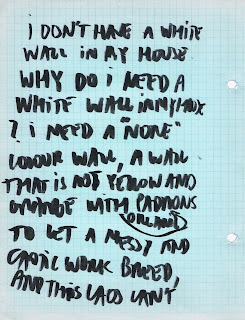 I DON'T HAVE A WHITE
WALL IN MY HOUSE
WHY DO I NEED A
WHITE WALL IN MY
? I NEED A "NONE"
COLOUR WALL, A WALL
THAT IS NOT YELLOW AND
ORANGE WITH
TO LET A MESSY AND
WORK BREED,
AND THIS CAN'T